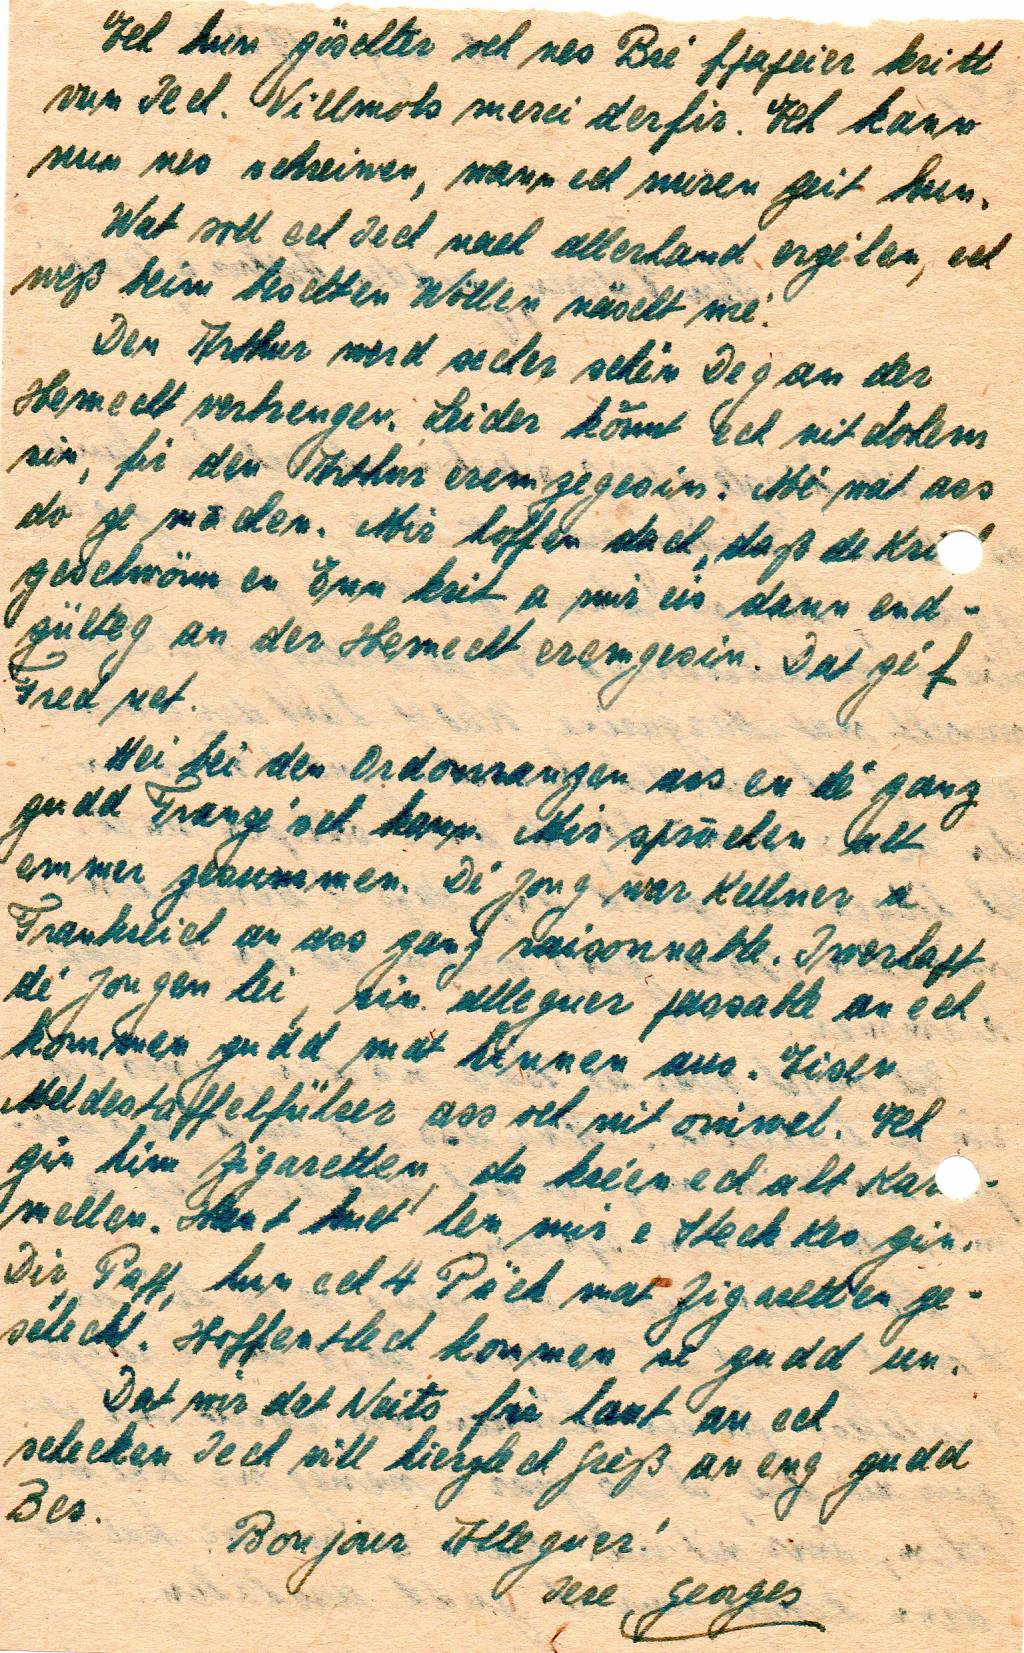 Ech hun göschter och nes Bréfpapeier kritt
vun Iech. Villmols merci derfir. Ech kann
nun nes schreiwen, wann ech nuren Zeit hun.
Wat soll ech Iech nach allerhand erzélen, ech
weß beim beschten Wöllen näscht mé.
Den Arthur werd secher schéin Deg an der
Hemecht verbrengen. Leider könnt ech nit dohem
sin, fir den Arthur erem ze gesin. Mé wat ass
do ze māchen. Mir hoffen dach, daß de Kri
geschwönn en Enn krit a mir eis dann end-
gülteg an der Hemecht eremgesin. Dat géf
Fred net.
Hei bei den Ordonnanzen ass en dé ganz
gudd Franzésch kann. Mir spriechen alt
emmer zesummen. Dé Jong war Kellner a
Frankreich an ass ganz raisonnable. Iwerhapt
dé Jongen hei, sin alleguer passabel an ech
kommen gudd mat hinnen aus. Eisen
Meldestaffelführer ass och nit oniwel. Ech
gin him Zigaretten, da kréien ech alt Kar-
mellen. Haut huet hen mir e Steck Kes gin.
Dir, Papp, hun ech 4 Päck mat Zigaretten ge-
scheckt. Hoffentlech kommen se gudd un.
Dat wir dat Neits fir haut an ech
schecken Iech vill hierzlech Greiß an eng gudd
Bes.
Bonjour Alleguer!
Iere Georges